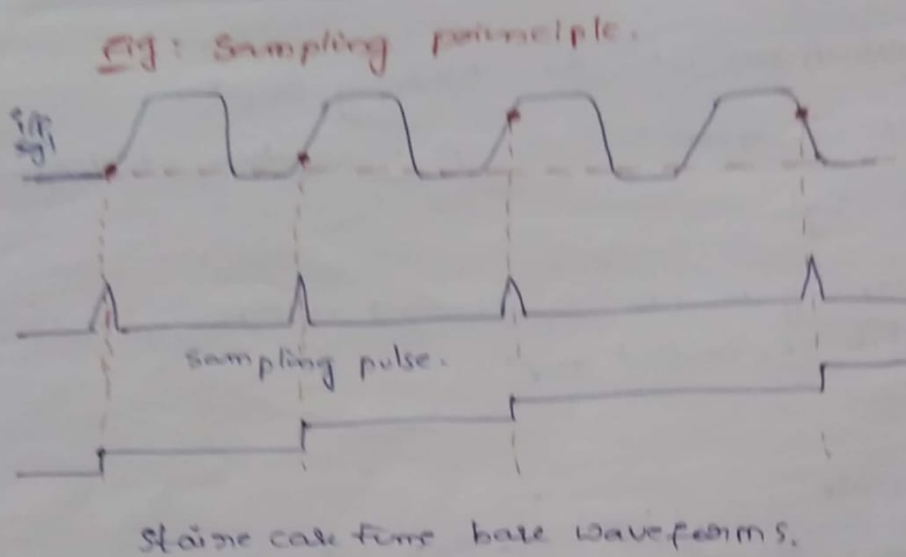 Fig: Sampling painnciple.
i/p
sgl
sampling pulse.
staire case time base waveforms.